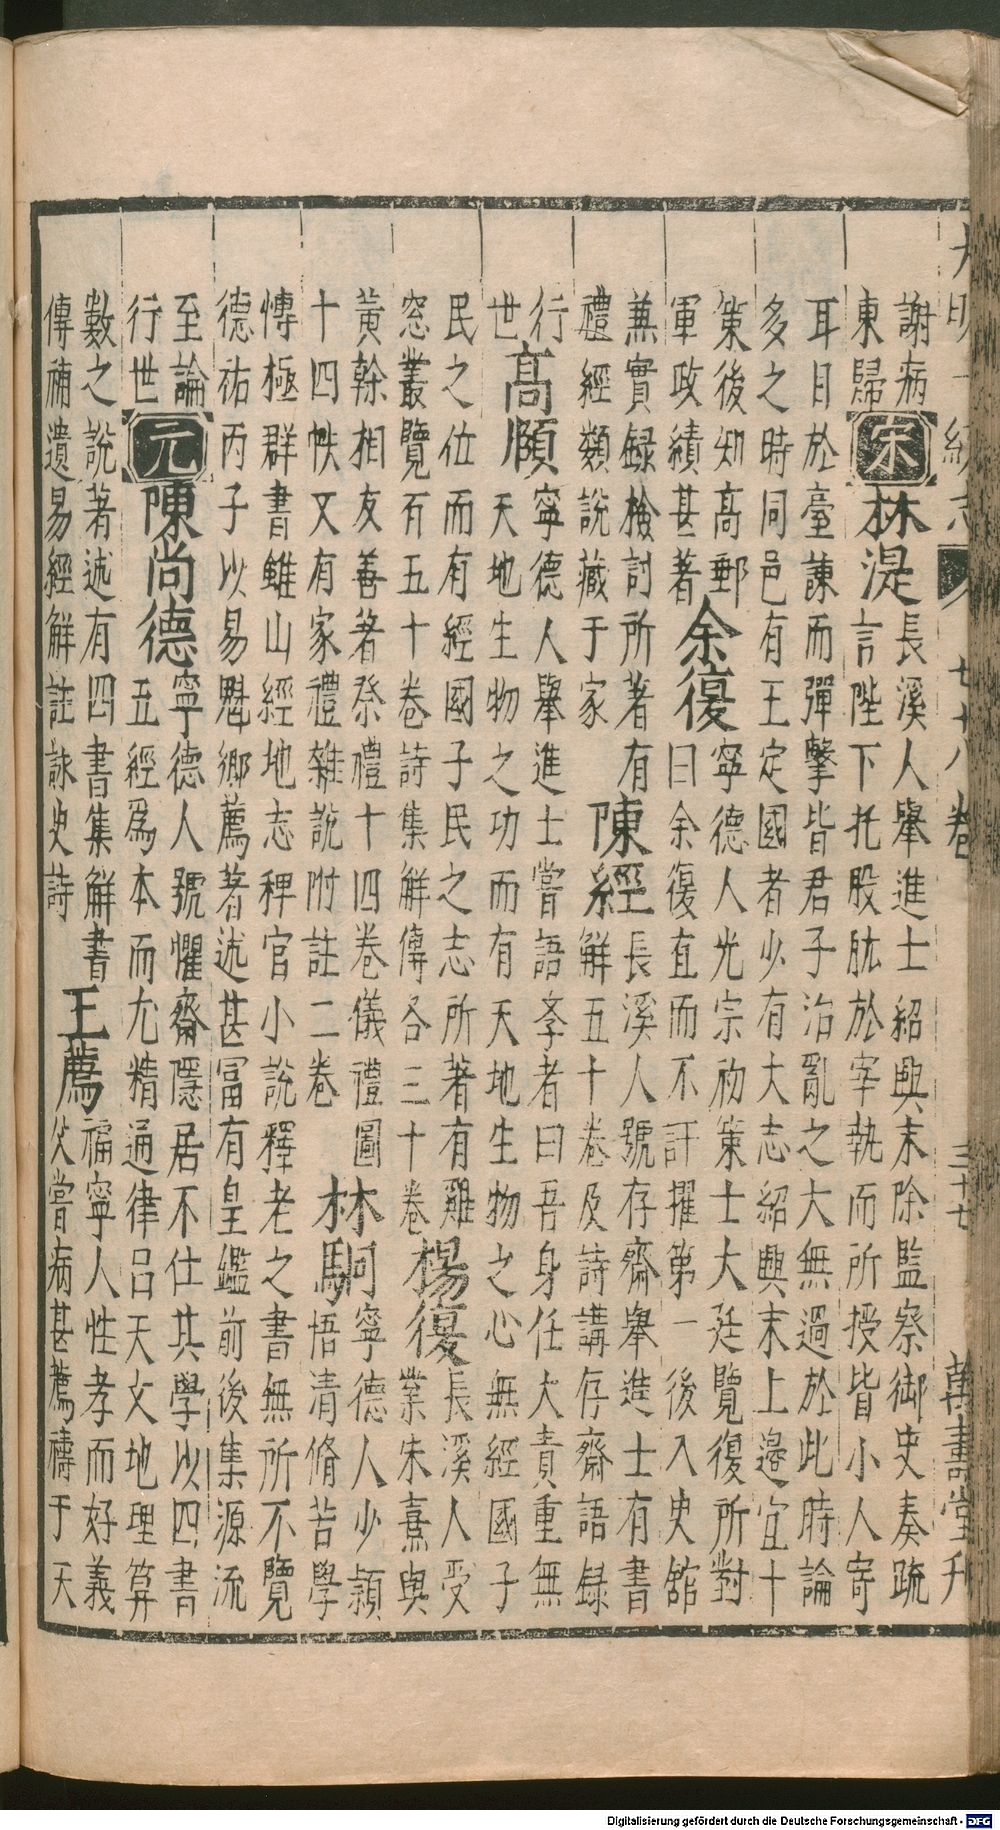 大明一統志 七十八卷 三十七
謝病
東歸
宋
林湜
長溪人舉進士 紹興末除監察御史奏疏
言陛下托股肱於宰執而所授皆小人寄
耳目於臺諫而彈擊皆君子治亂之大無過於此時論
多之時同邑有王定國者少有大志紹興末上邊宜十
策後知高郵
軍政績甚著
余復
寧德人光宗初策士大廷覽復所對
曰余復直而不訐擢第一 後入史舘
兼實録檢討所著有
禮經類說藏于家
陳經
長溪人號存齋舉進士有書
解五十卷及詩講存齋語録
行
世
高頤
寧德人舉進士嘗語孝者曰吾身任大責重無
天地生物之功而有天地生物之心無經國子
民之位而有經國子民之志所著有雞
窓叢覽有五十卷詩集解傳各三十卷
楊復
長溪人受
業朱熹與
黃榦相友善著祭禮十四卷儀禮圖
十四帙又有家禮雜說附註二卷
林駉
寧德人少穎
悟清脩苦學
慱極群書雖山經地志稗官小說釋老之書無所不覽
德祐丙子以易魁鄉薦著述甚富有皇鑑前後集源流
至論
行世
元
陳尚德
寧德人號懼齋隱居不仕其學以四書
五經爲本而尤精通律呂天文地理算
數之說著述有四書集解書
傳補遺易經解註詠史詩
王薦
福寧人性孝而好義
父嘗病甚薦禱于天
Digitalisierung gefördert durch die Deutsche Forschungsgemeinschaft - DFG